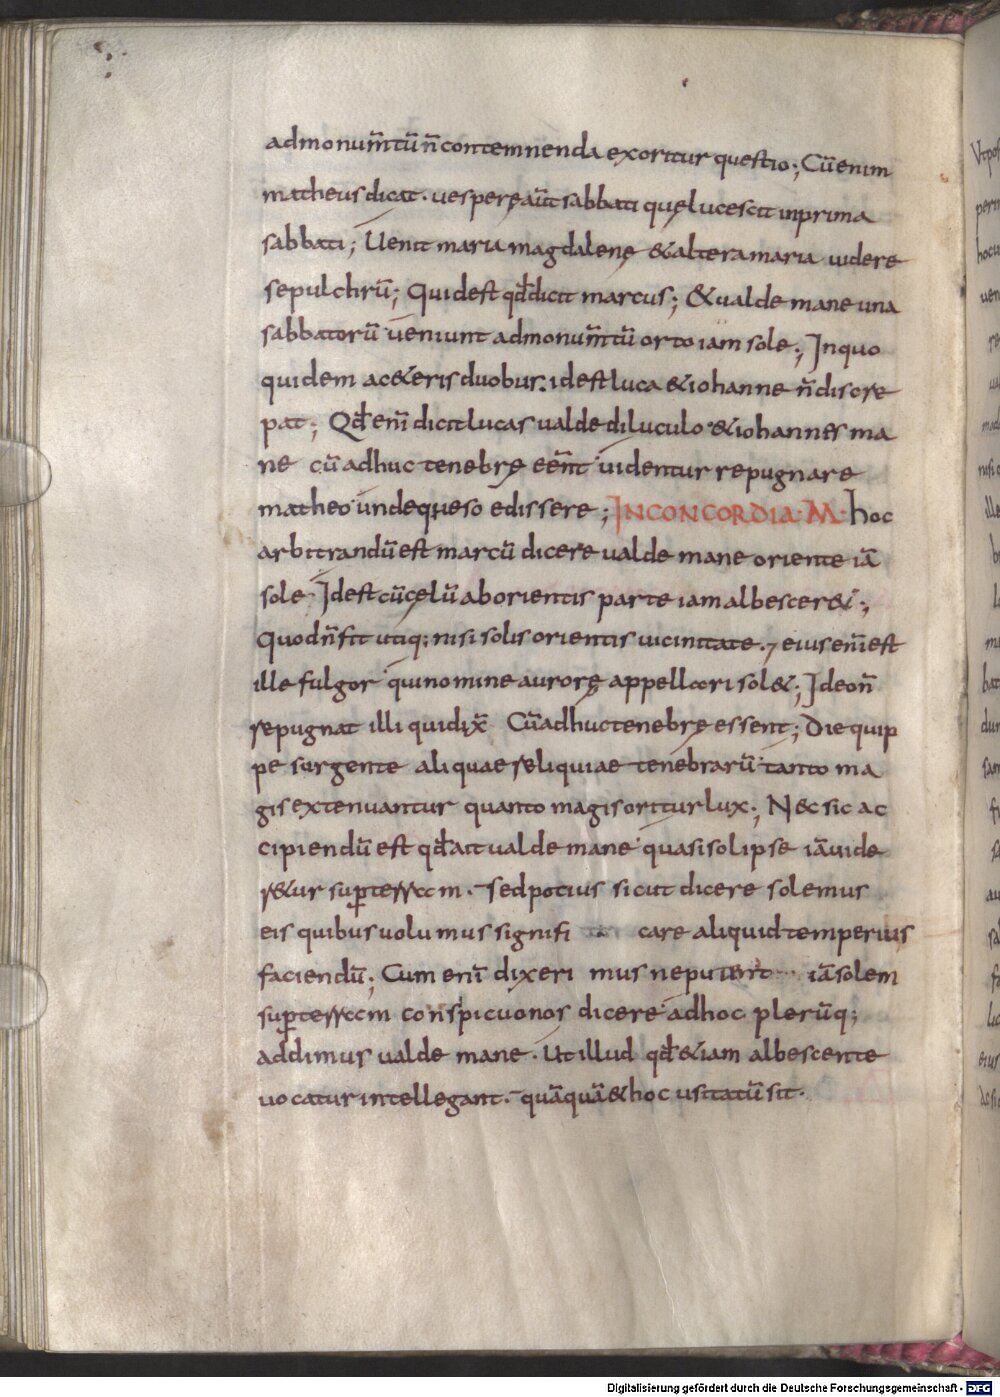 admonum̄tū n̄ contemnenda exoritur questio; Cū enim
matheus dicat. vespere aūt sabbati quę lucescit inprima
sabbati; Uenit maria magdalenę & altera maria uidere
sepulchrū; Quid est qđ dicit marcus; & ualde mane una
sabbatorū ueniunt admonum̄tū orto iam sole; In quo
quidem ac&eris duobus. id est luca & iohanne n̄ discre
pat; Qđ enī dicit lucas ualde diluculo & iohannes ma
ne cū adhuc tenebrę een̄t uidentur repugnare
matheo unde queso edissere; INCONCORDIA. M. hoc
arbitrandū est marcū dicere ualde mane oriente iā
sole. Id est cū cęlū ab orientis parte iam albescer&;
Quod n̄ fit utiq; nisi solis orientis uicinitate. eius enī est
ille fulgor qui nomine aurorę appellari sol&; Ideo n̄
repugnat illi qui dix̄ Cū adhuc tenebrę essent; Die quip
pe surgente aliquae reliquiae tenebrarū tanto ma
gis extenuantur quanto magis oritur lux; N& sic ac
cipiendū est qđ ait ualde mane quasi sol ipse iā uide
r&ur sup terram. Sed potius sicut dicere solemus
eis quibus uolumus signifi care aliquid temperius
faciendū; Cum enī dixeri mus ne putent iā solem
sup terram conspicuonos dicere adhoc plerūq;
addimus ualde mane. Ut illud qđ &iam albescente
uocatur intellegant. quāquā & hoc usitatū sit.
Digitalisierung gefördert durch die Deutsche Forschungsgemeinschaft - DFG